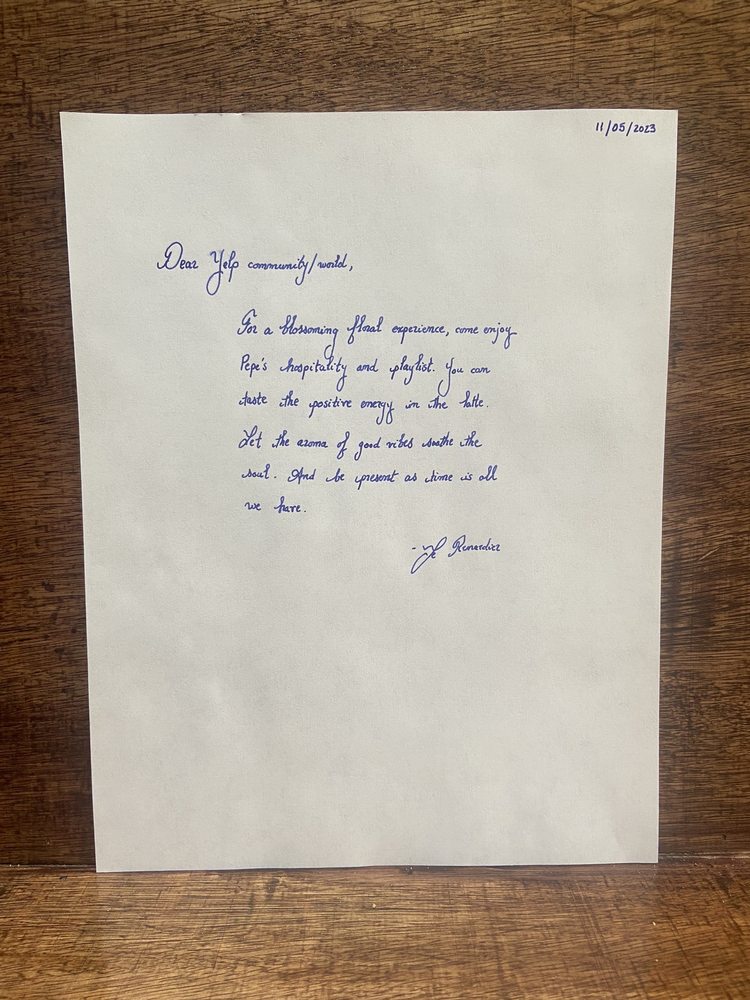 11/05/2023
Dear Yelp community/world,
For a blossoming floral experience, come enjoy
Pepe's hospitality and playlist. You can
taste the positive energy in the latte.
Let the aroma of good vibes soothe the
soul. And be present as time is all
we have.